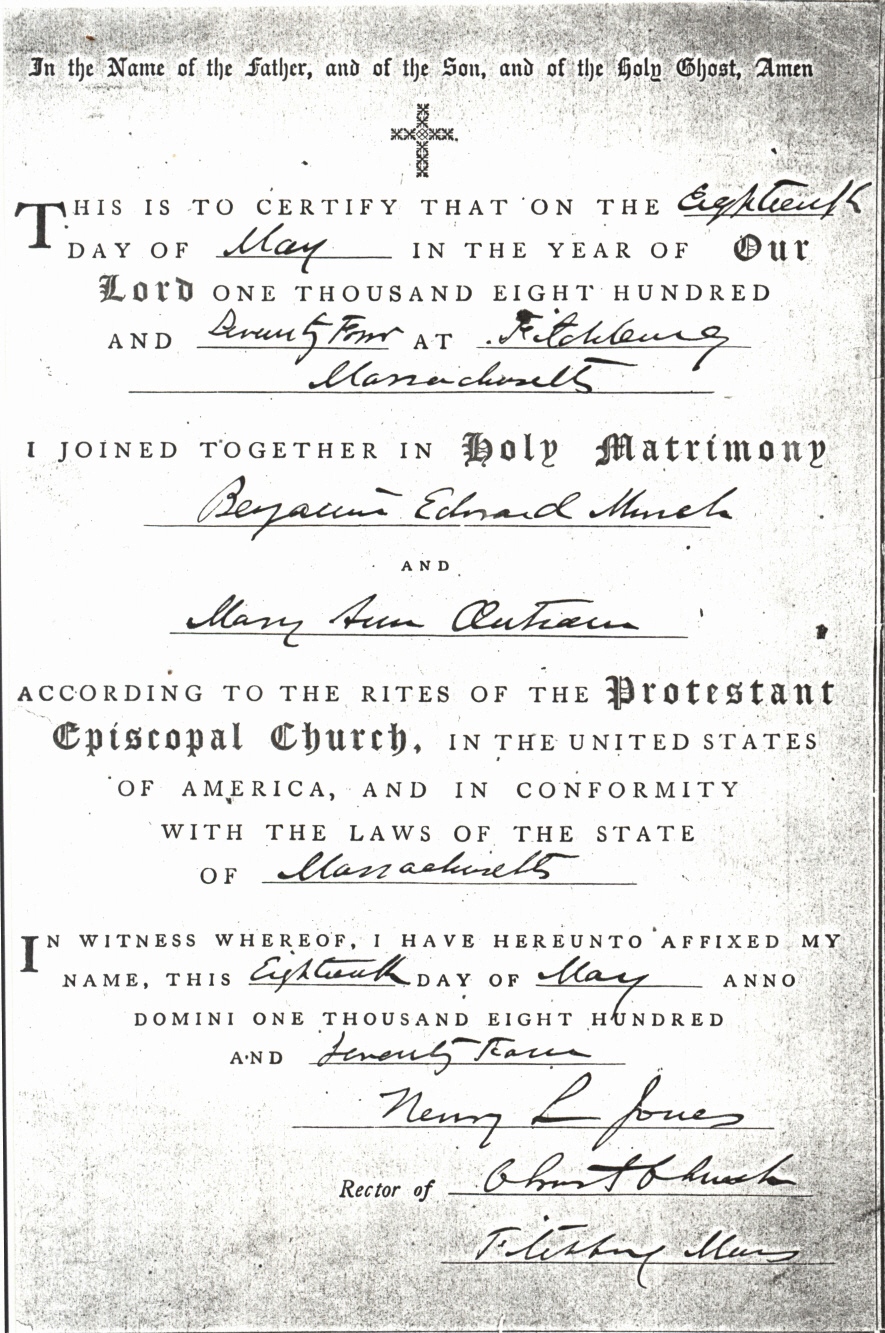 In the Name of the Father, and of the Son, and of the Holy Ghost, Amen
THIS IS TO CERTIFY THAT ON THE Eighteenth
DAY OF May IN THE YEAR OF Our
Lord ONE THOUSAND EIGHT HUNDRED
AND Seventy Four AT Fitchburg
Massachusetts
I JOINED TOGETHER IN Holy Matrimony
Benjamin Edward Munch
AND
Mary Ann Outram
ACCORDING TO THE RITES OF THE Protestant
Episcopal Church, IN THE UNITED STATES
OF AMERICA, AND IN CONFORMITY
WITH THE LAWS OF THE STATE
OF Massachusetts
IN WITNESS WHEREOF, I HAVE HEREUNTO AFFIXED MY
NAME, THIS Eighteenth DAY OF May ANNO
DOMINI ONE THOUSAND EIGHT HUNDRED
AND Seventy Four
Henry L Jones
Rector of Christ Church
Fitchburg Mass